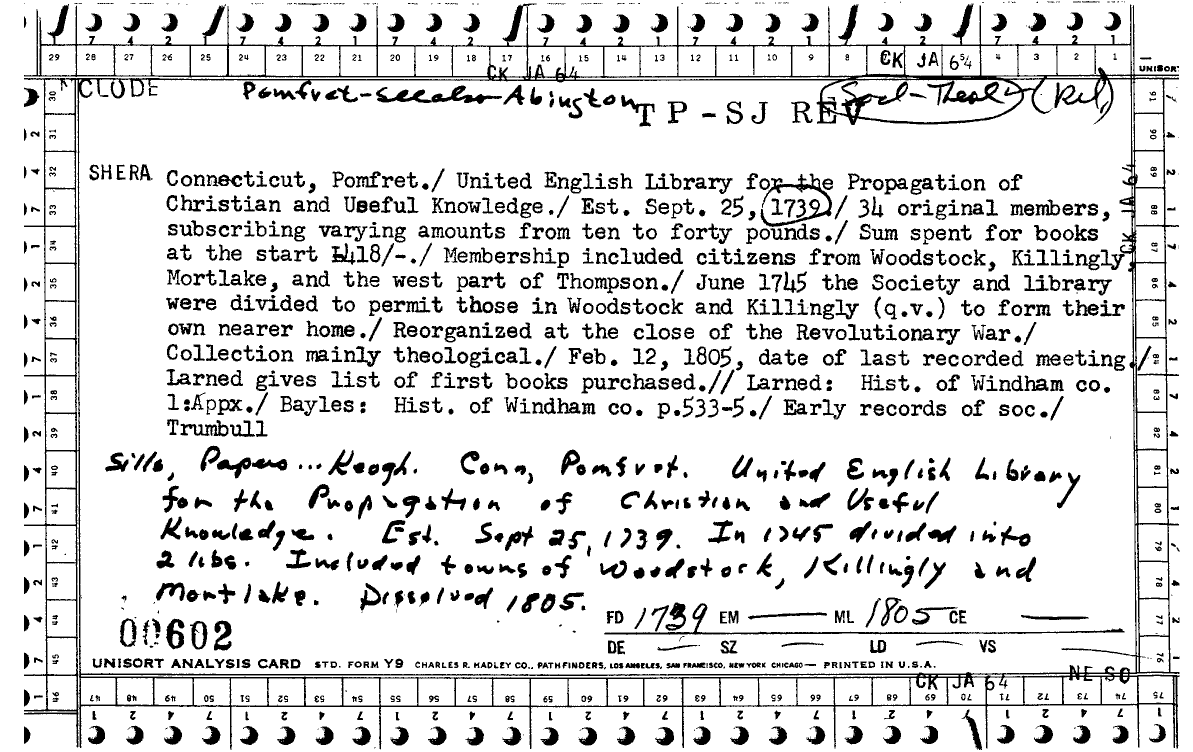 7 4 2 1 7 4 2 1 7 4 2 1 7 4 2 1 7 4 2 1 7 4 2 1 7 4 2 1
29 28 27 26 25 24 23 22 21 20 19 18 17 16 15 14 13 12 11 10 9 8 CK JA 64 5 4 3 2 1
CK JA 64
UNISORT
CLODE Pomfret-see also Abington TP-SJ REV Socl-Theol (Rel)
SHERA Connecticut, Pomfret./ United English Library for the Propagation of
Christian and Useful Knowledge./ Est. Sept. 25, 1739./ 34 original members,
subscribing varying amounts from ten to forty pounds./ Sum spent for books
at the start Ł418/-./ Membership included citizens from Woodstock, Killingly,
Mortlake, and the west part of Thompson./ June 1745 the Society and library
were divided to permit those in Woodstock and Killingly (q.v.) to form their
own nearer home./ Reorganized at the close of the Revolutionary War./
Collection mainly theological./ Feb. 12, 1805, date of last recorded meeting./
Larned gives list of first books purchased.// Larned: Hist. of Windham co.
1:Appx./ Bayles: Hist. of Windham co. p.533-5./ Early records of soc./
Trumbull
CK JA 64
Sills, Papers...Keogh. Conn, Pomfret. United English Library
for the Propagation of Christian and Useful
Knowledge. Est. Sept 25, 1739. In 1745 divided into
2 libs. Included towns of Woodstock, Killingly and
Mortlake. Dissolved 1805.
FD 1739 EM — ML 1805 CE
00602
DE — SZ — LD — VS
UNISORT ANALYSIS CARD STD. FORM Y9 CHARLES R. HADLEY CO., PATHFINDERS, LOS ANGELES, SAN FRANCISCO, NEW YORK CHICAGO — PRINTED IN U.S.A.
CK JA 64 NE SO
47 48 49 50 51 52 53 54 55 56 57 58 59 60 61 62 63 64 65 66 67 68 69 70 71 72 73 74 75
1 2 4 7 1 2 4 7 1 2 4 7 1 2 4 7 1 2 4 7 1 2 4 7 1 2 4 7